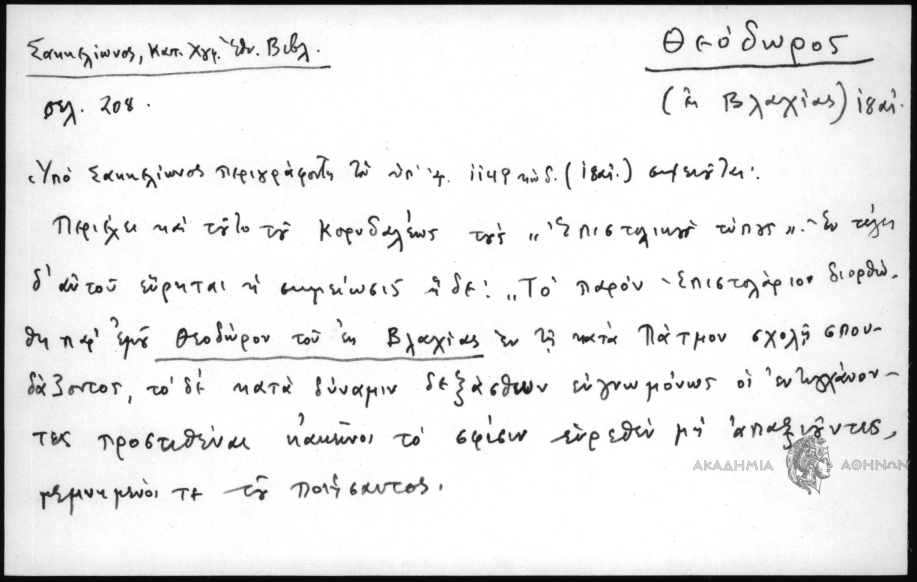 Σακκελίωνος, Κατ. Χγφ. Ἐθν. Βιβλ.
Θεόδωρος
σελ. 208.
(ἐκ Βλαχίας) ιη΄ αἰ.
Ὑπὸ Σακκελίωνος περιγράφοντος τὸν ὑπ' ἀρ. κώδ. ( αἰ.) σημειοῦται:
Περιέχει καὶ τοῦτο τοῦ Κορυδαλέως τοὺς „Ἐπιστολικοὺς τύπους". Ἐν τέλει
δ' αὐτοῦ εὕρηται ἡ σημείωσις ἥδε: „Τὸ παρὸν Ἐπιστολάριον διορθώ-
θη παρ' ἐμοῦ Θεοδώρου τοῦ ἐκ Βλαχίας ἐν τῇ κατὰ Πάτμον σχολῇ σπου-
δάζοντος, τὸ δὲ κατὰ δύναμιν δεξάσθων εὐγνωμόνως οἱ ἐντυγχάνον-
τες προστιθέναι κἀκεῖνοι τὸ σφίσιν εὑρεθὲν μὴ ἀπαξιοῦντες,
μεμνημένοι τε τοῦ ποιήσαντος.
ΑΚΑΔΗΜΙΑ ΑΘΗΝΩΝ